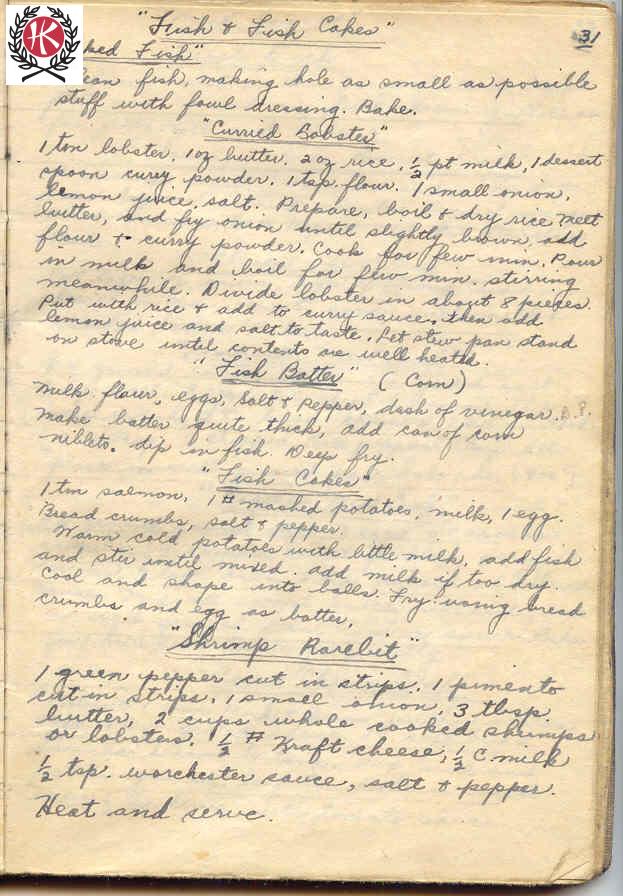 31
"Fish & Fish Cakes"
ked Fish"
ean fish, making hole as small as possible
stuff with fowl dressing. Bake.
"Curried Lobster"
1 tin lobster, 1 oz butter, 2 oz rice, 1/2 pt milk, 1 dessert
spoon curry powder, 1 tsp. flour. 1 small onion,
lemon juice, salt. Prepare, boil & dry rice. Melt
butter, and fry onion until slightly brown, add
flour & curry powder. Cook for few min. Pour
in milk and boil for few min. stirring
meanwhile. Divide lobster in about 8 pieces.
Put with rice & add to curry sauce, then add
lemon juice and salt to taste. Let stew pan stand
on stove until contents are well heated.
"Fish Batter" (Corn)
Milk flour, eggs, Salt & Pepper, dash of vinegar. B.P.
Make batter quite thick, add can of corn
niblets. dip in fish. Deep fry.
"Fish Cakes"
1 tin salmon, 1 # mashed potatoes, milk, 1 egg.
Bread crumbs, salt & pepper.
Warm cold potatoes with little milk, add fish
and stir until mixed. add milk if too dry.
Cool and shape into balls. Fry using bread
crumbs and egg as batter.
"Shrimp Rarebit"
1 green pepper cut in strips. 1 pimento
cut in strips. 1 small onion, 3 tbsp.
butter, 2 cups whole cooked shrimps
or lobsters. 1/2 # Kraft cheese, 1/2 C milk
1/2 tsp. worchester sauce, salt & pepper.
Heat and serve.
HK